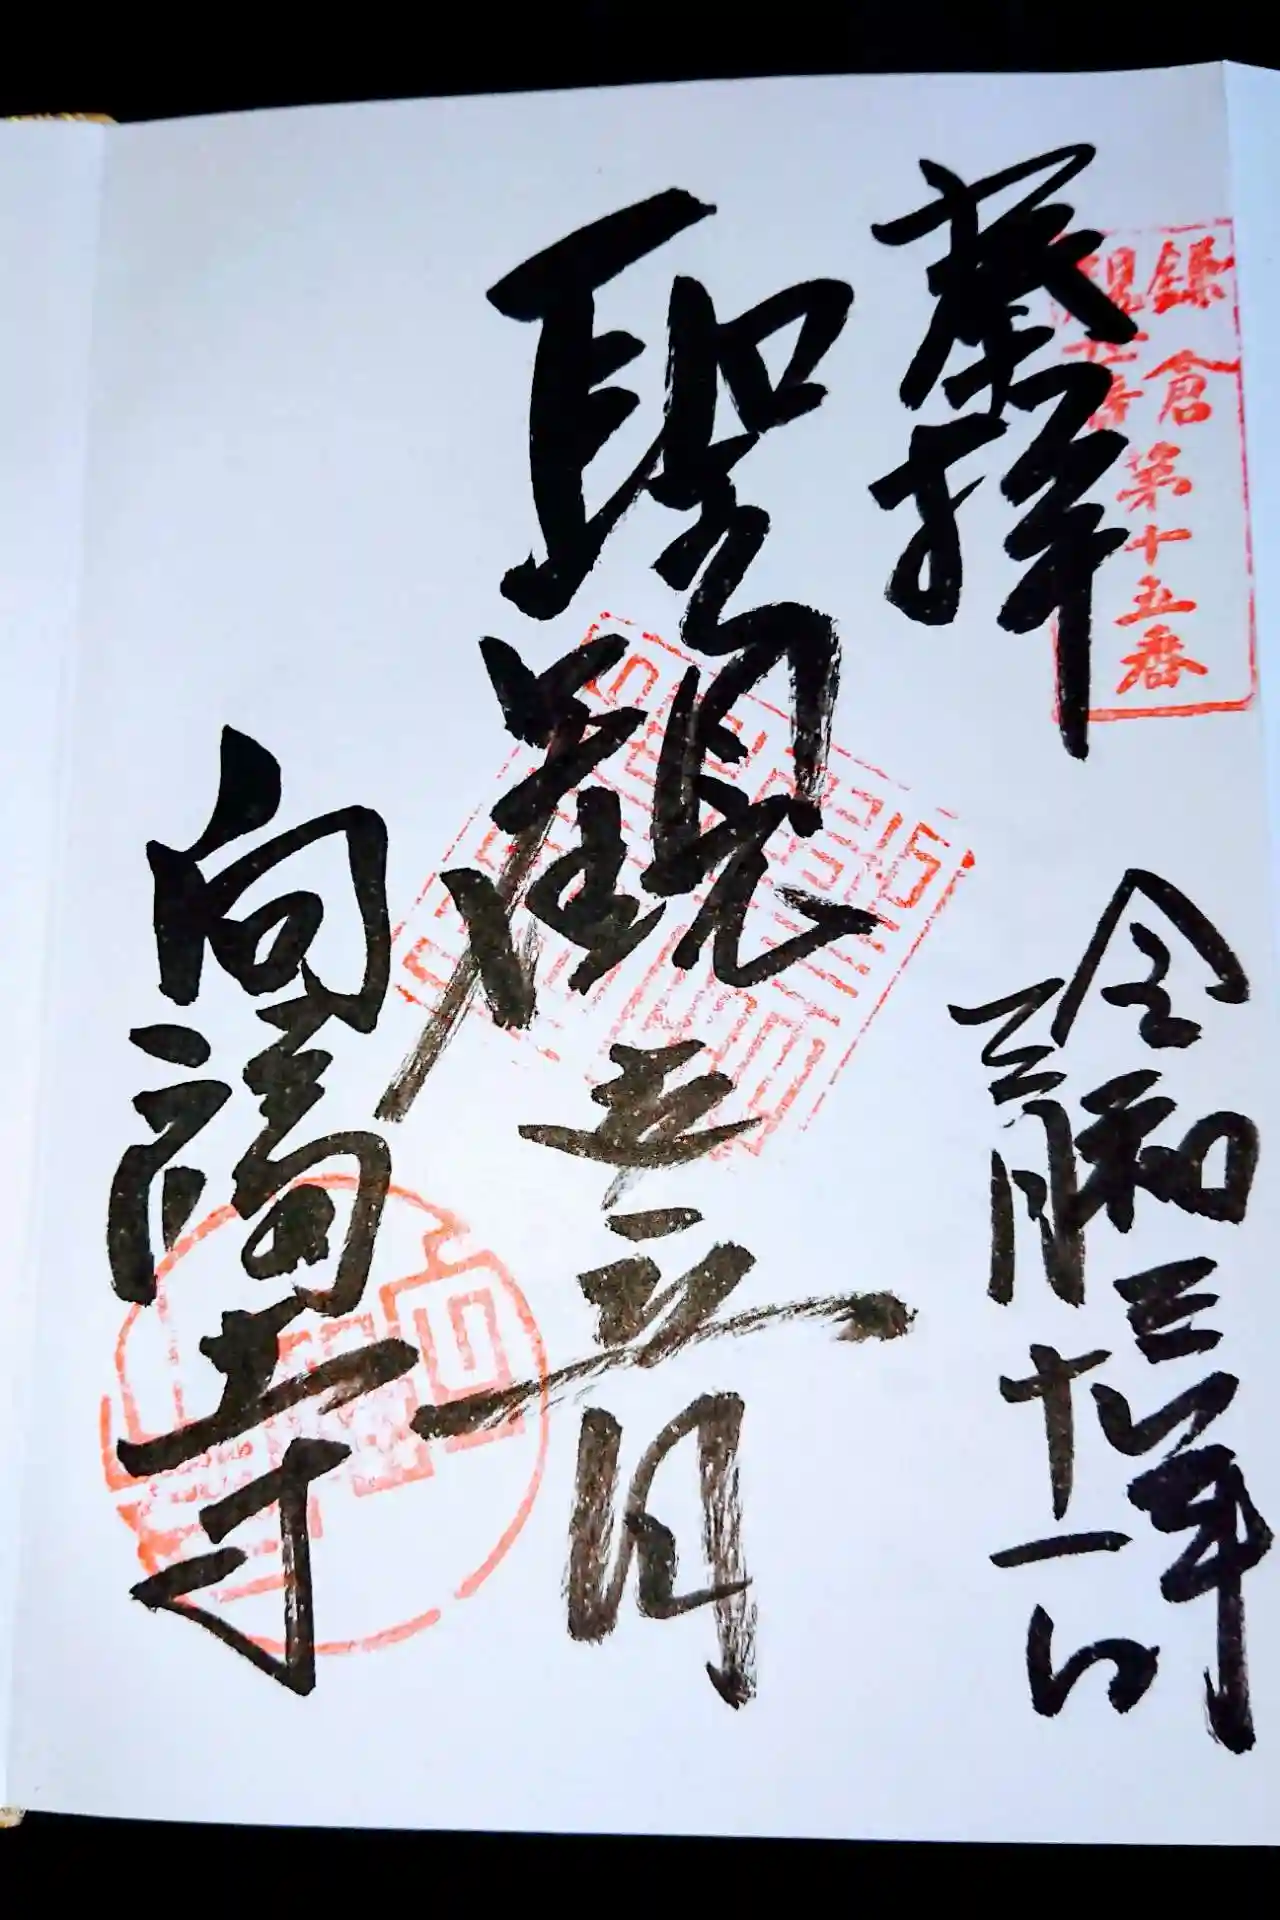 鎌倉
観世音
第十五番
奉拝
令和三年
三月十一日
聖観世音
向福寺